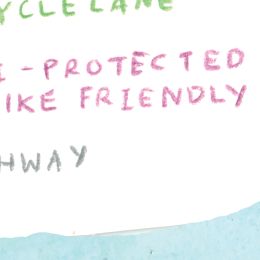 YCLE LANE
I-PROTECTED
IKE FRIENDLY
HWAY